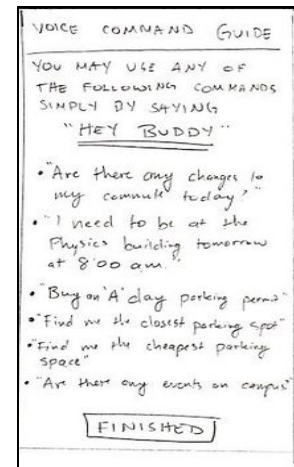 VOICE COMMAND GUIDE
YOU MAY USE ANY OF
THE FOLLOWING COMMANDS
SIMPLY BY SAYING
"HEY BUDDY"
• "Are there any changes to
my commute today?"
• "I need to be at the
Physics building tomorrow
at 8:00 am."
• "Buy an 'A' day parking permit"
• "Find me the closest parking spot"
• "Find me the cheapest parking
space"
• "Are there any events on campus"
FINISHED